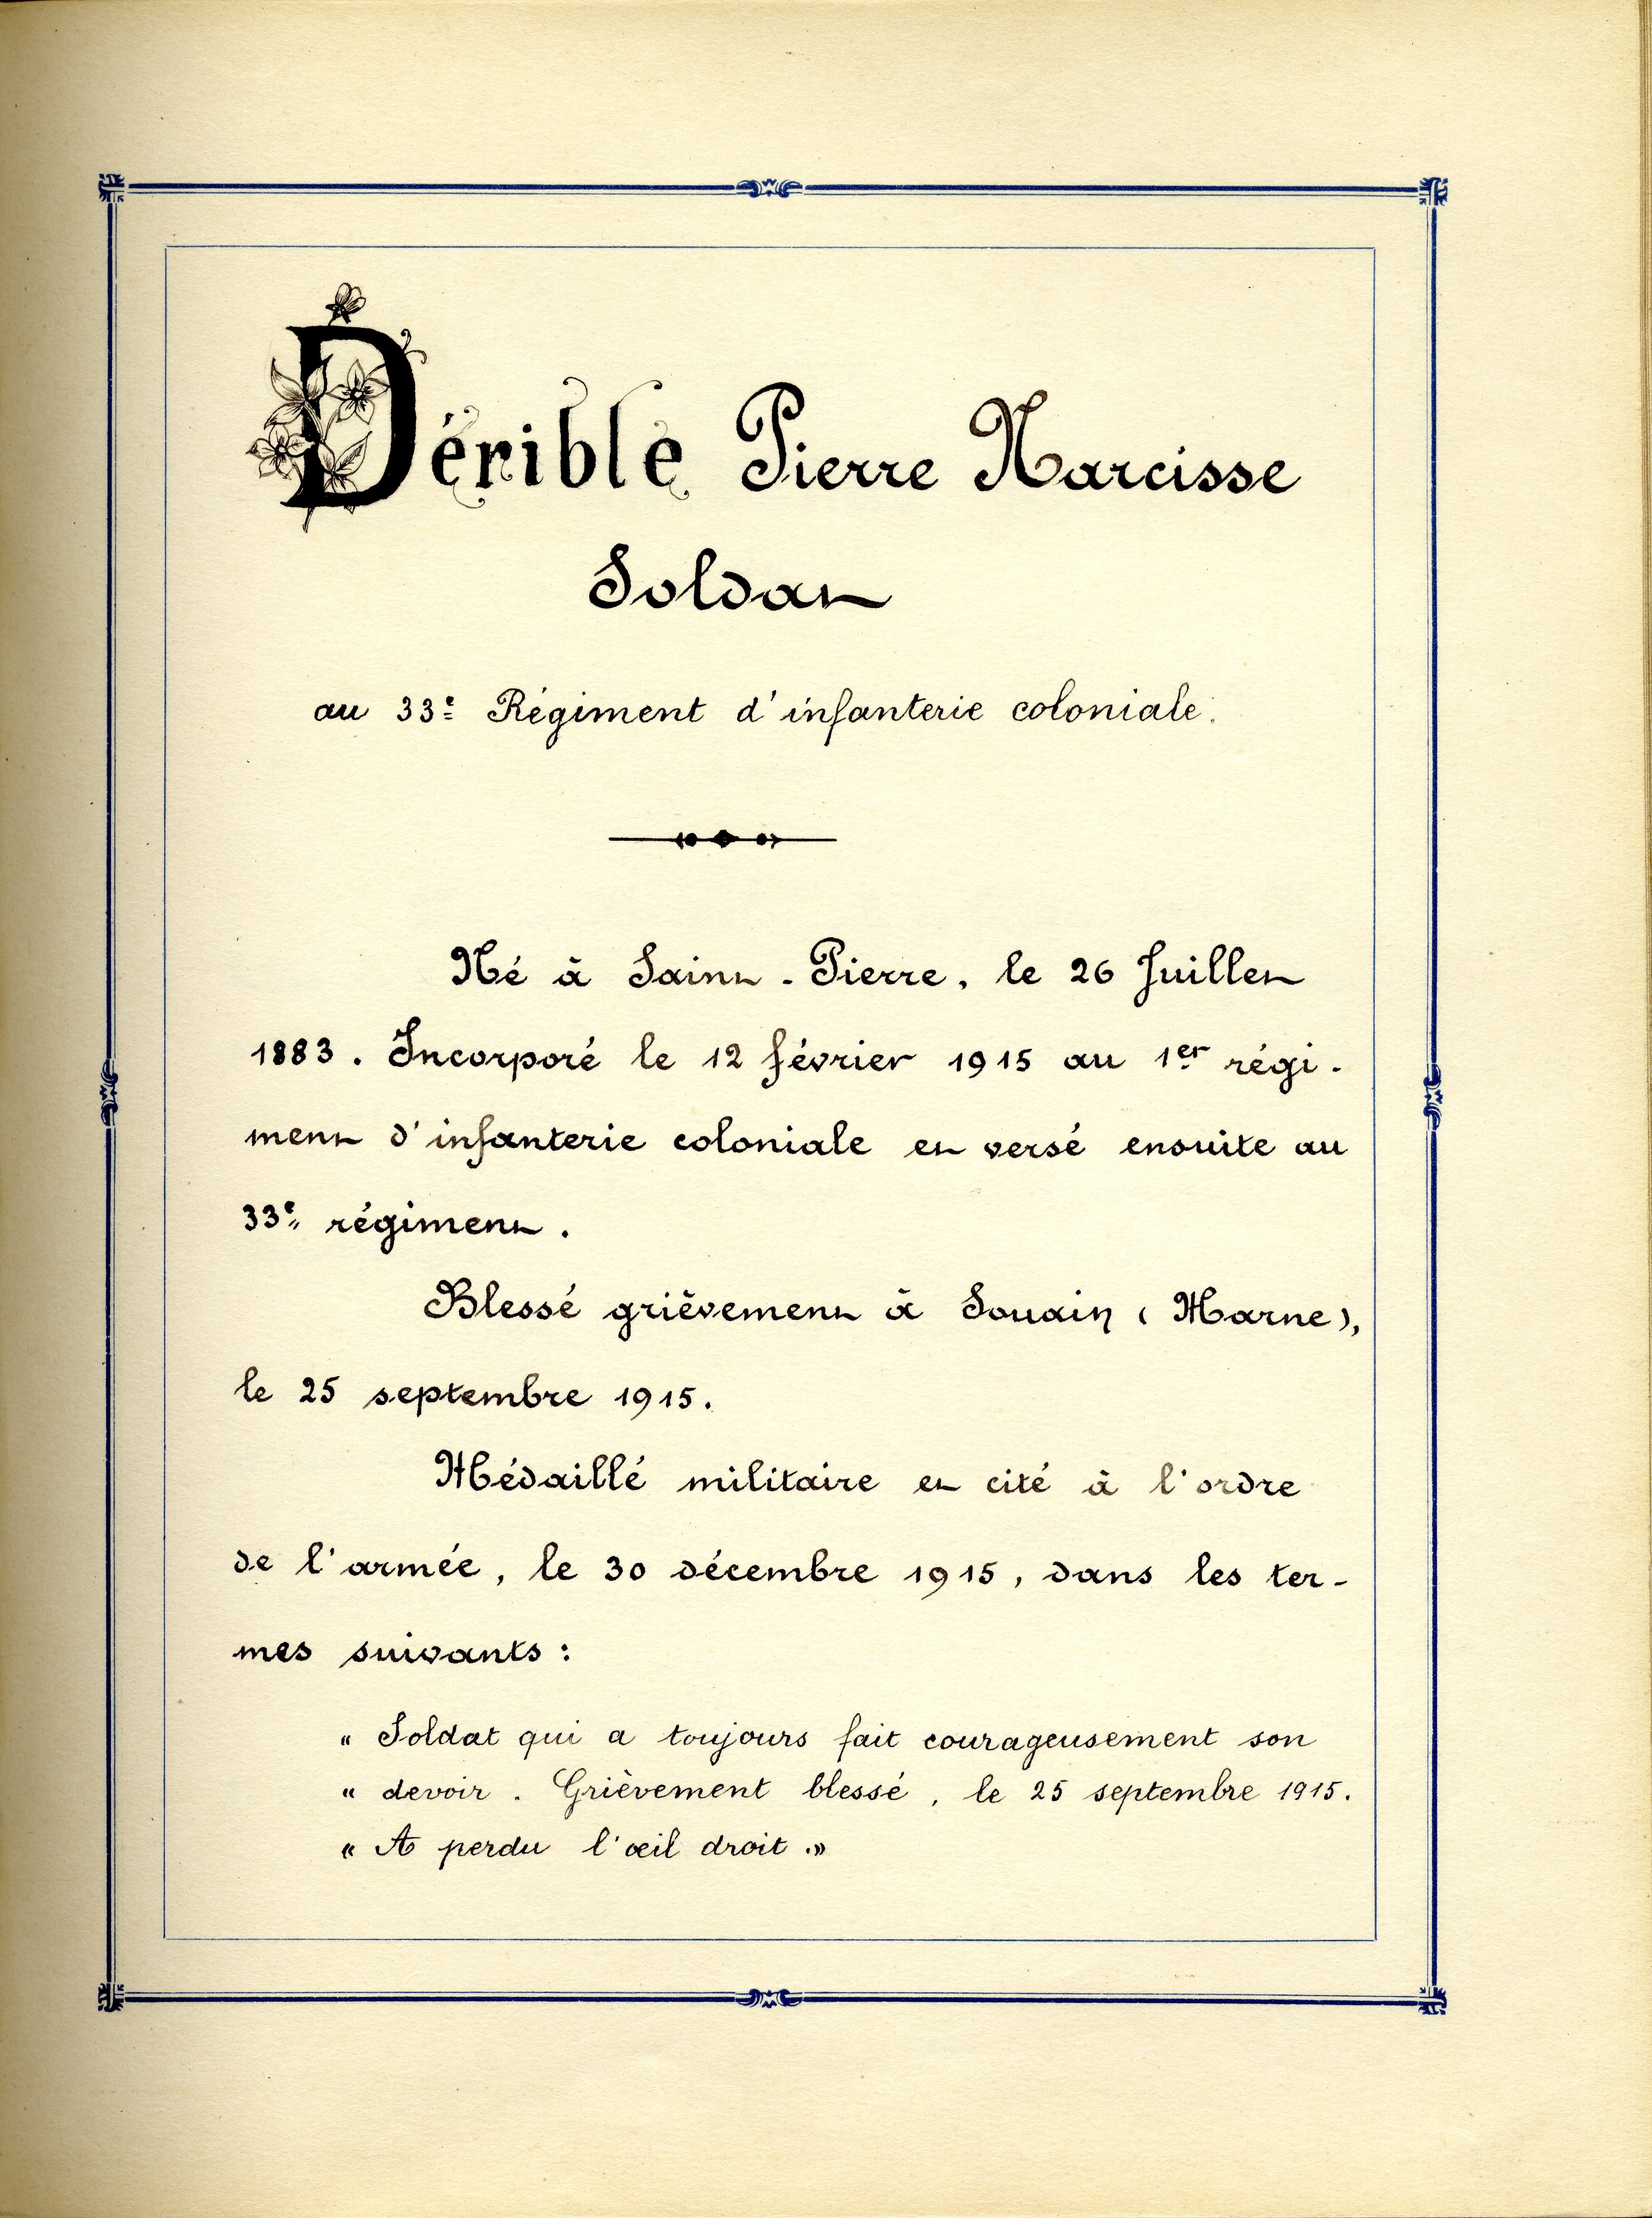 Dérible Pierre Narcisse
Soldat
au 33e Régiment d'infanterie coloniale.
Né à Saint-Pierre, le 26 Juillet
1883. Incorporé le 12 février 1915 au 1er régi-
ment d'infanterie coloniale et versé ensuite au
33e régiment.
Blessé grièvement à Souain (Marne),
le 25 septembre 1915.
Médaillé militaire et cité à l'ordre
de l'armée, le 30 décembre 1915, dans les ter-
mes suivants :
« Soldat qui a toujours fait courageusement son
« devoir. Grièvement blessé, le 25 septembre 1915.
« A perdu l'œil droit. »